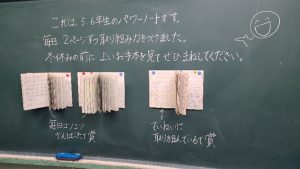 これは、5.6年生のパワーノートです。
毎日、2ページずつ取り組み力をつけました。
冬休みの前に、上いお手本を見てぜひまねしてください。
毎日コツコツ
がんばったで賞
ていねいに
取り組んでいるで賞